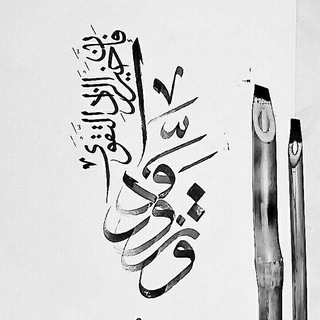 وتزودوا
فإن خير الزاد التقوى